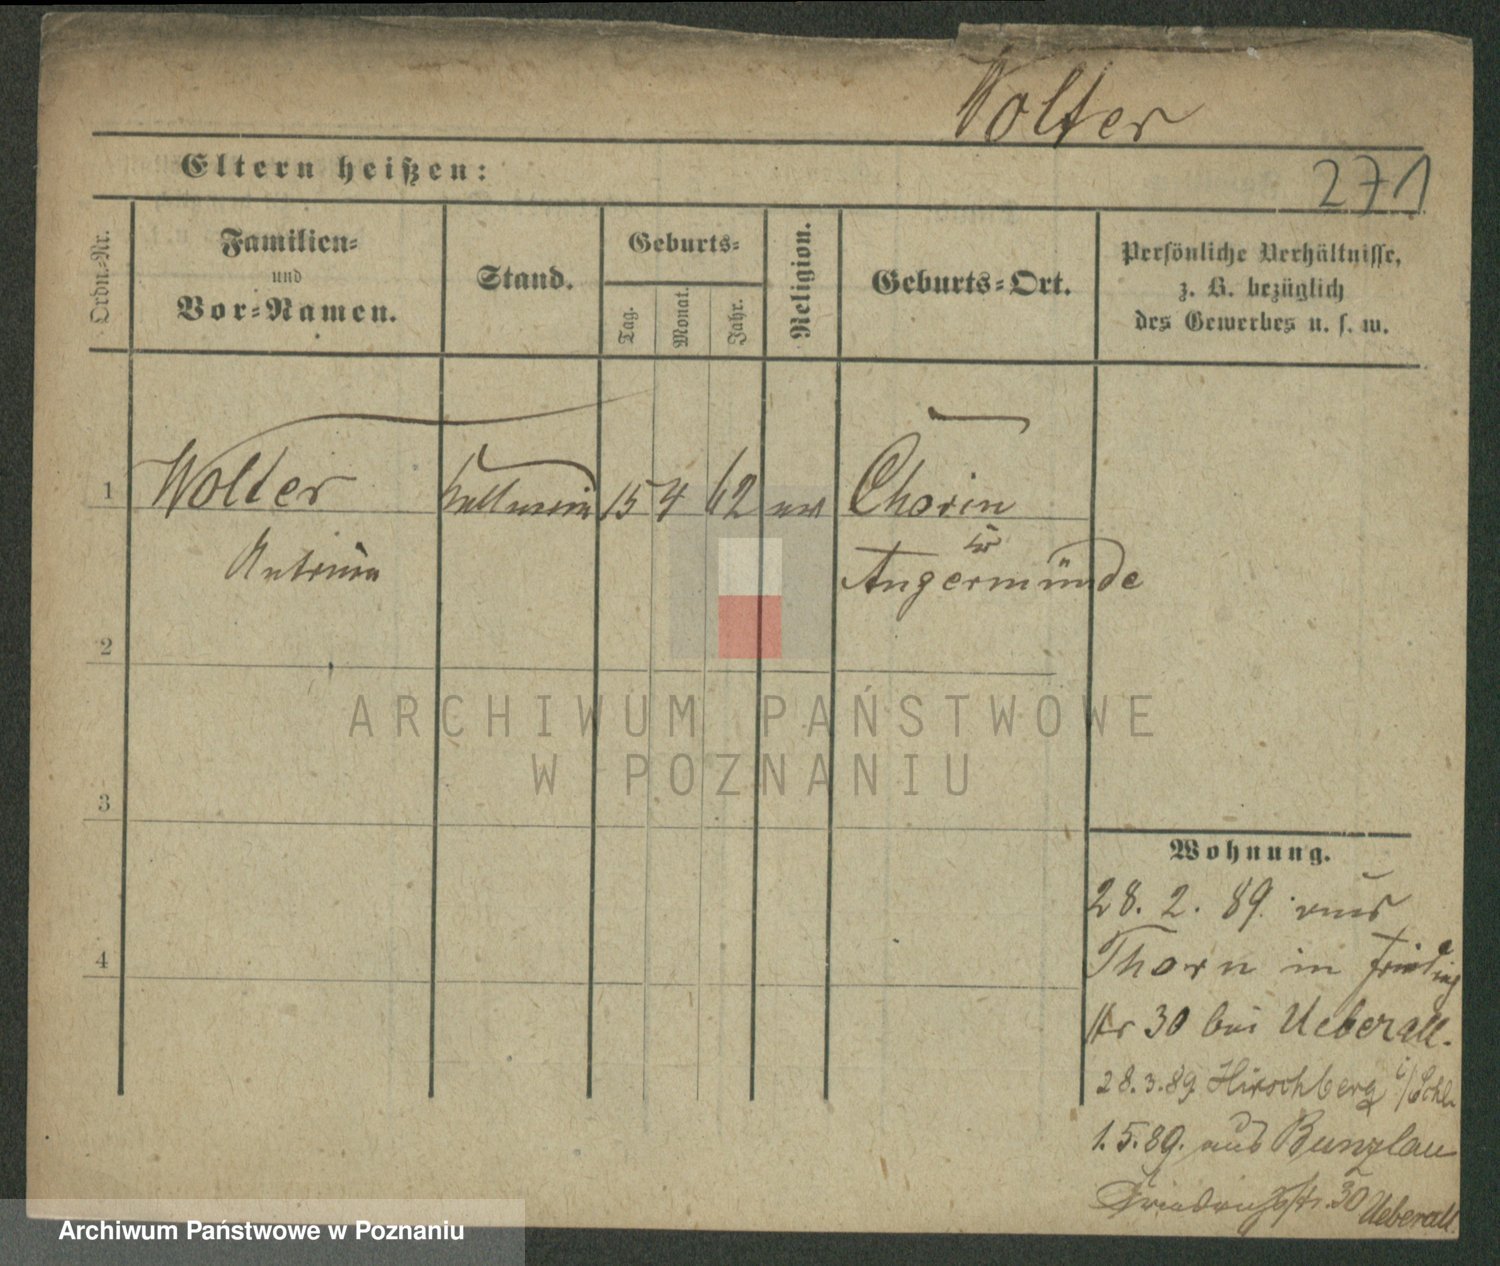 Wolter
Eltern heißen:
271
Ordn.-Nr.
Familien-
und
Vor-Namen.
Stand.
Geburts-
Tag.
Monat.
Jahr.
Religion.
Geburts-Ort.
Persönliche Verhältnisse,
z. B. bezüglich
des Gewerbes u. s. w.
1
Wolter
Kellnerin
15
4
62
ev
Chorin
Kr
Angermünde
2
ARCHIWUM PAŃSTWOWE
W POZNANIU
3
4
Wohnung.
28. 2. 89. aus
Thorn in
30 bei Ueberall.
28.3.89. Hirschberg i/Schl.
1.5.89. aus Bunzlau
Friedrichstr. 30 Ueberall.
Archiwum Państwowe w Poznaniu